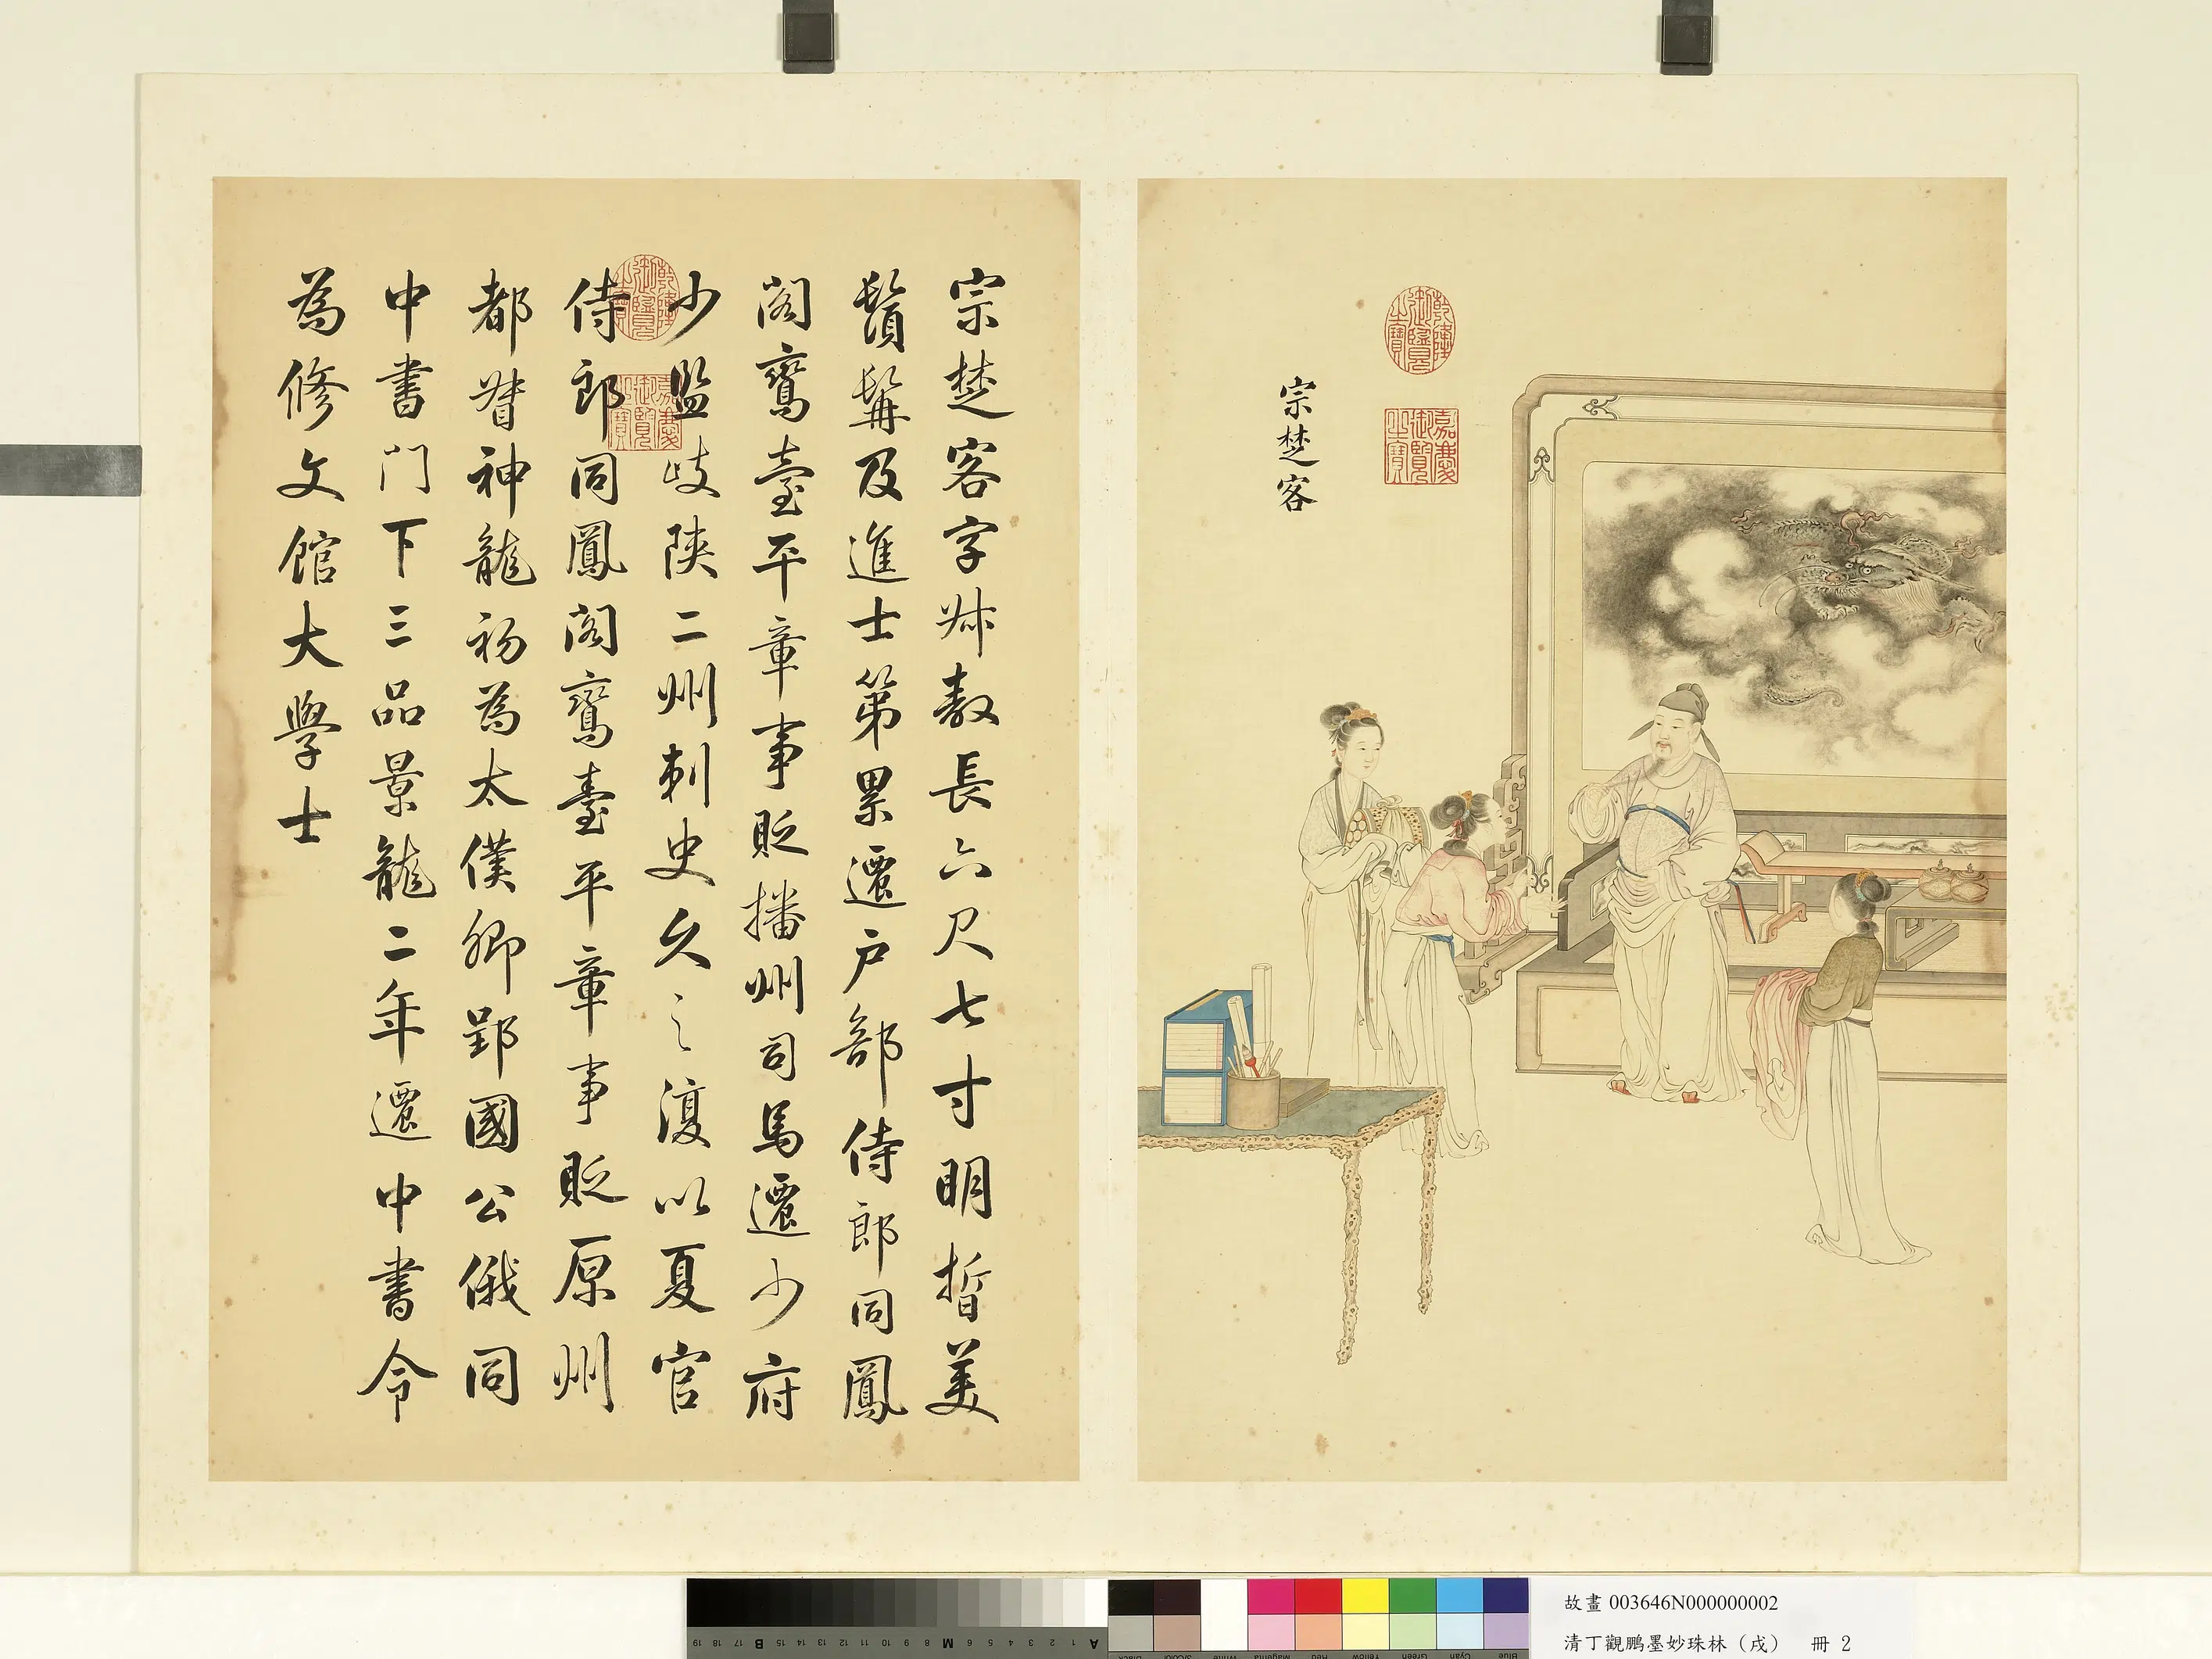 宗楚客
乾隆御覽之寶
嘉慶御覽之寶
宗楚客字叔敖長六尺七寸明晢美
鬚髯及進士第累遷户部侍郎同鳳
閣鸞臺平章事貶播州司馬遷少府
少監岐陝二州刺史久之復以夏官
侍郎同鳳閣鸞臺平章事貶原州
都督神龍初為太僕卿郢國公俄同
中書門下三品景龍二年遷中書令
為修文館大學士
乾隆御覽之寶
嘉慶御覽之寶
19 18 17 B 16 15 14 13 12 11 10 9 8 M 7 6 5 4 3 2 1 A
Black 3/Color White Magenta Red Yellow Green Cyan Blue
故畫 003646N000000002
清丁觀鵬墨妙珠林（戌） 冊 2